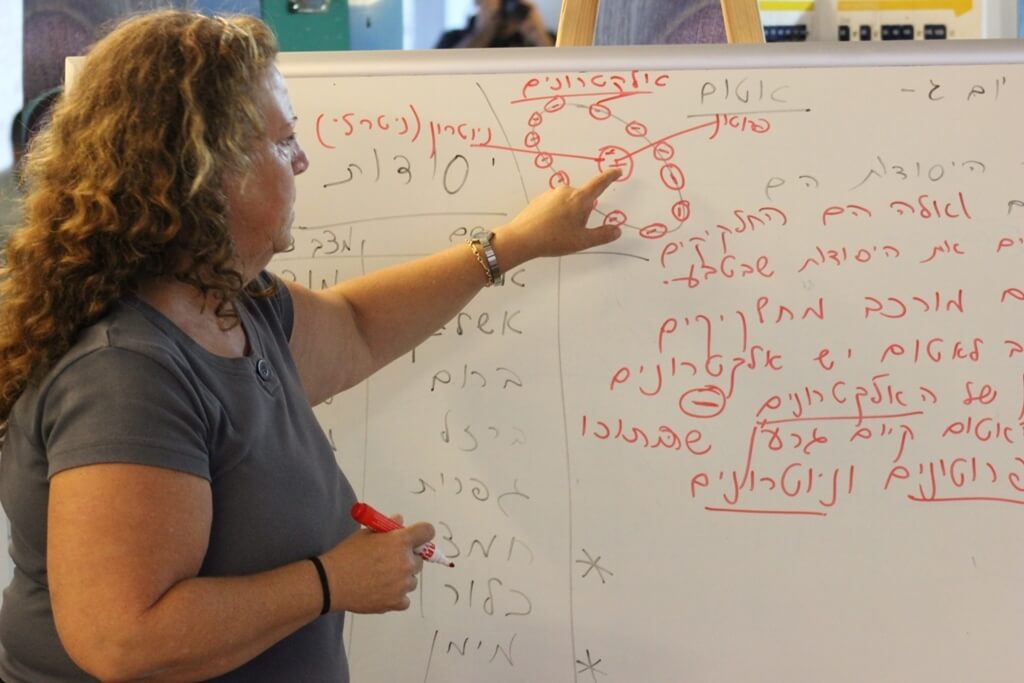 יום ג-
אטום
אלקטרונים
פרוטון
ניוטרון (ניטרלי)
היסודות הם
ואולה הם החלקיקים
את היסודות שבטבע.
מורכב מחלקיקים
לאטום יש אלקטרונים
של האלקטרונים
האטום קיים גרעין שבתוכו
פרוטונים וניוטרונים
יסודות
שם
מצב
אשל
ברום
ברזל
גפרית
חמצ
כלור
מימן